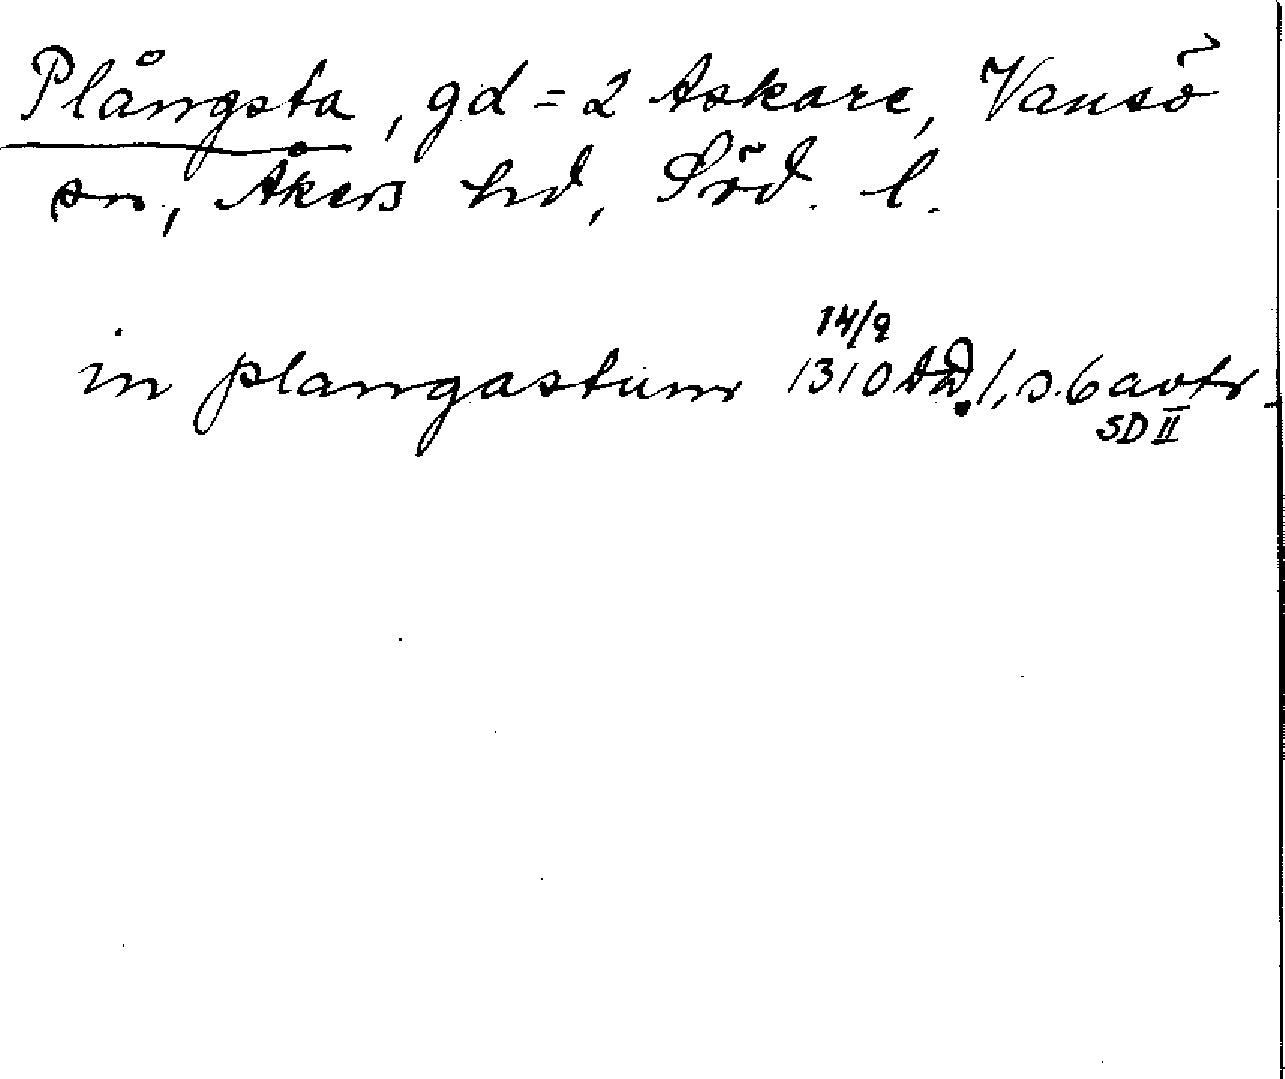 Plångsta, gd = 2 Askare, Vansö
sn, Åkers hd, Söd. l.
14/9
in plangastum 1310 1, s. 6 avtr.
SD II